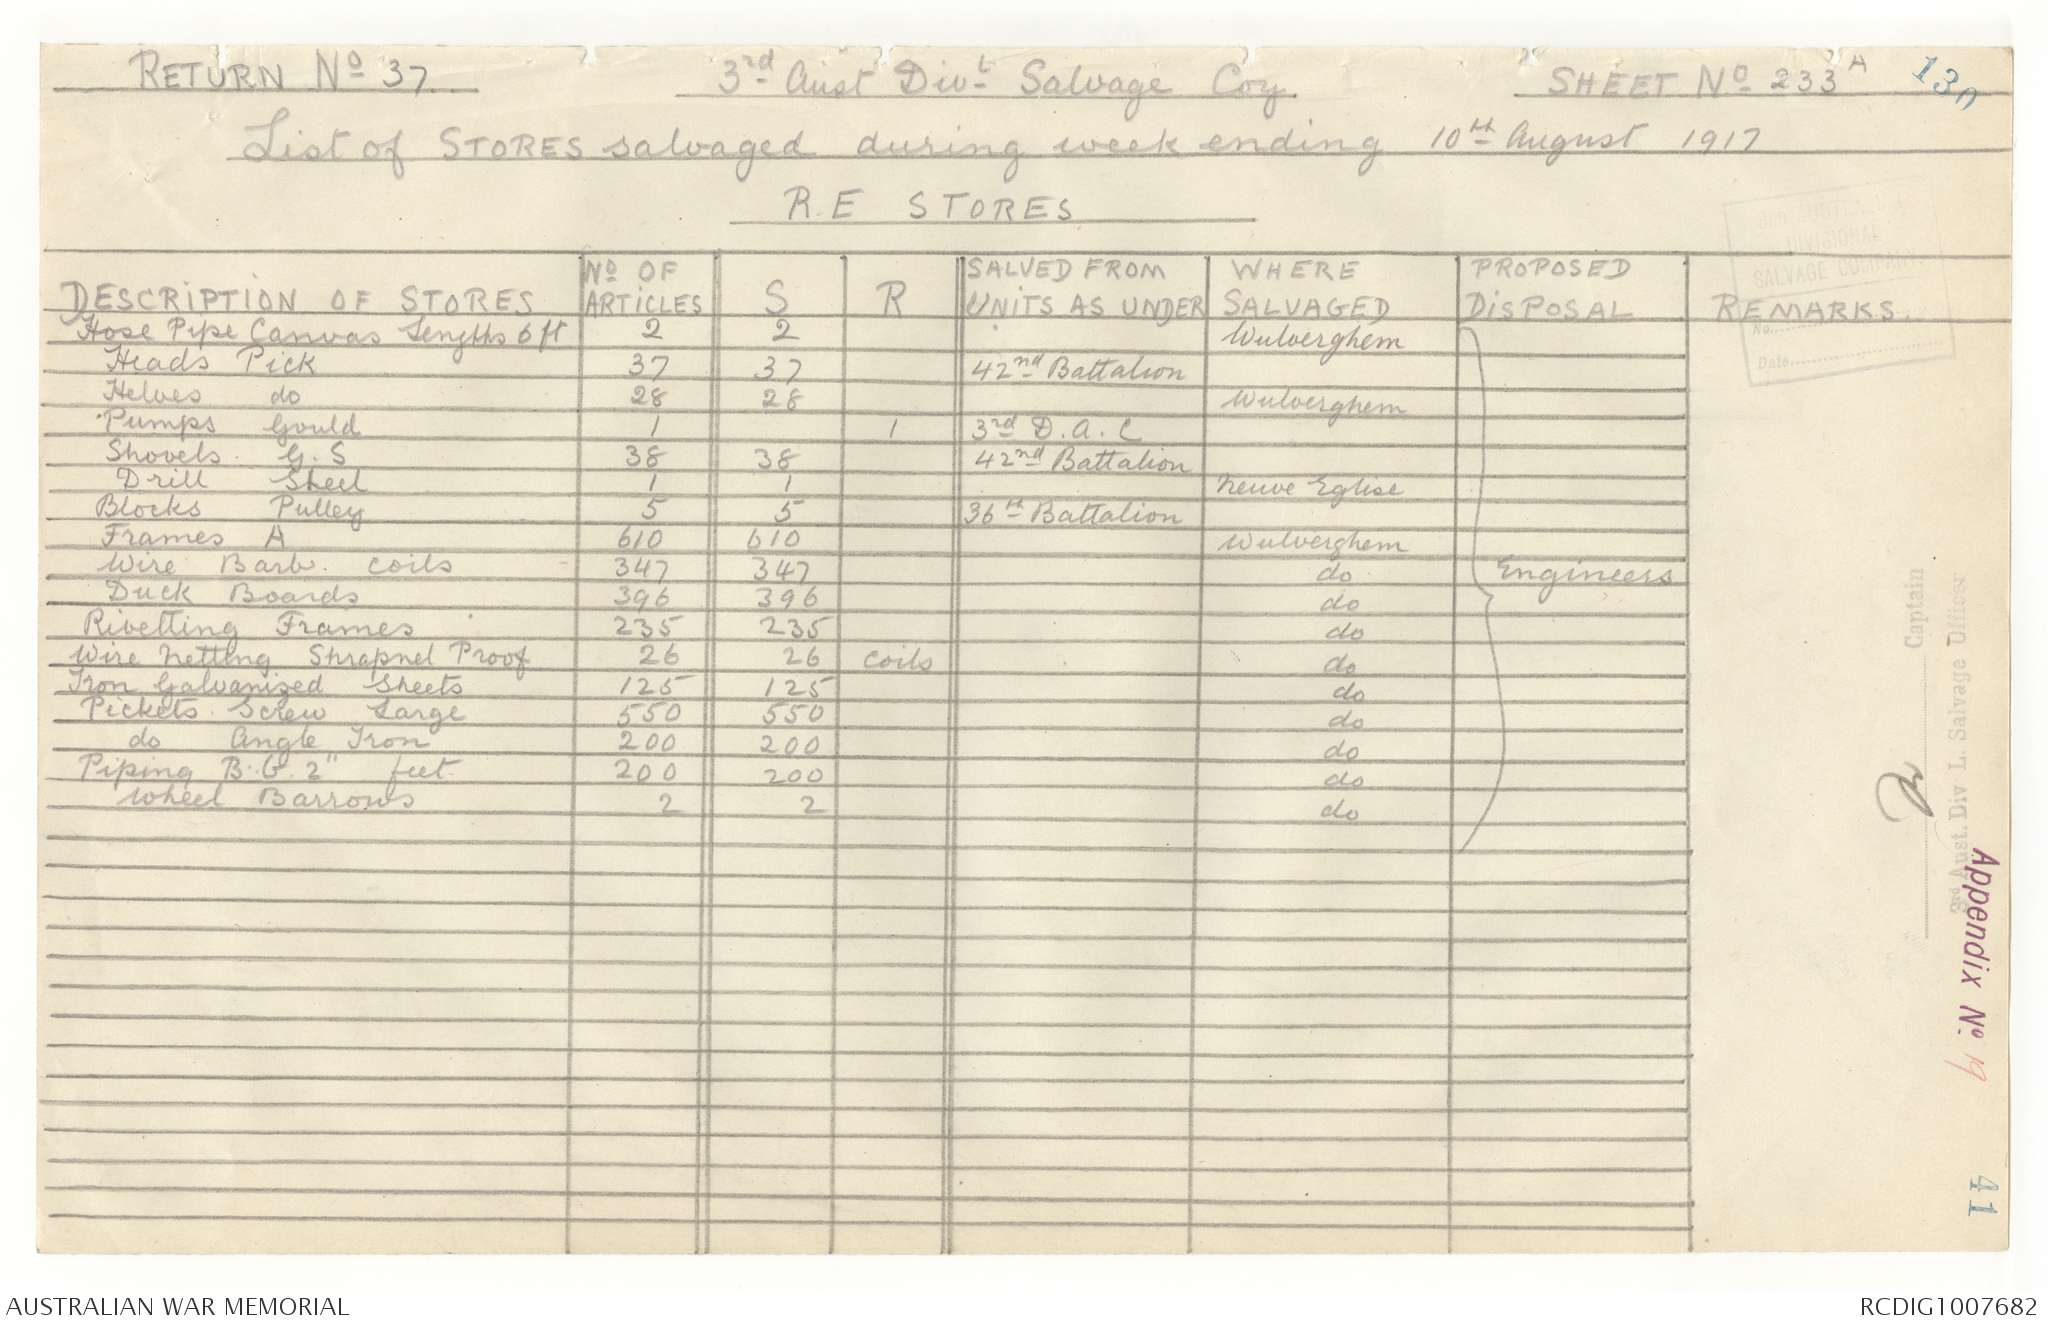 RETURN Nº 37 3rd Aust Divl Salvage Coy SHEET Nº 233A
List of STORES salvaged during week ending 10th August 1917
R.E STORES
DESCRIPTION OF STORES Nº OF ARTICLES S R SALVED FROM UNITS AS UNDER WHERE SALVAGED PROPOSED DISPOSAL REMARKS.
Hose Pipe Canvas Lengths 6 ft 2 2 Wulverghem
Heads Pick 37 37 42nd Battalion
Helves do 28 28 Wulverghem
Pumps Gould 1 1 3rd D.A.C
Shovels G.S 38 38 42nd Battalion
Drill Sheel 1 1 Neuve Eglise
Blocks Pulley 5 5 36th Battalion
Frames A 610 610 Wulverghem
Wire Barb. coils 347 347 do Engineers
Duck Boards 396 396 do
Rivetting Frames 235 235 do
Wire Netting Shrapnel Proof 26 26 coils do
Iron Galvanised Sheets 125 125 do
Pickets Screw Large 550 550 do
do Angle Iron 200 200 do
Piping B.G. 2" feet 200 200 do
Wheel Barrows 2 2 do
DIVISIONAL
SALVAGE COMPANY.
No.
Date
Captain
3rd Aust. Div L. Salvage Officer.
Appendix Nº
41
AUSTRALIAN WAR MEMORIAL
RCDIG1007682